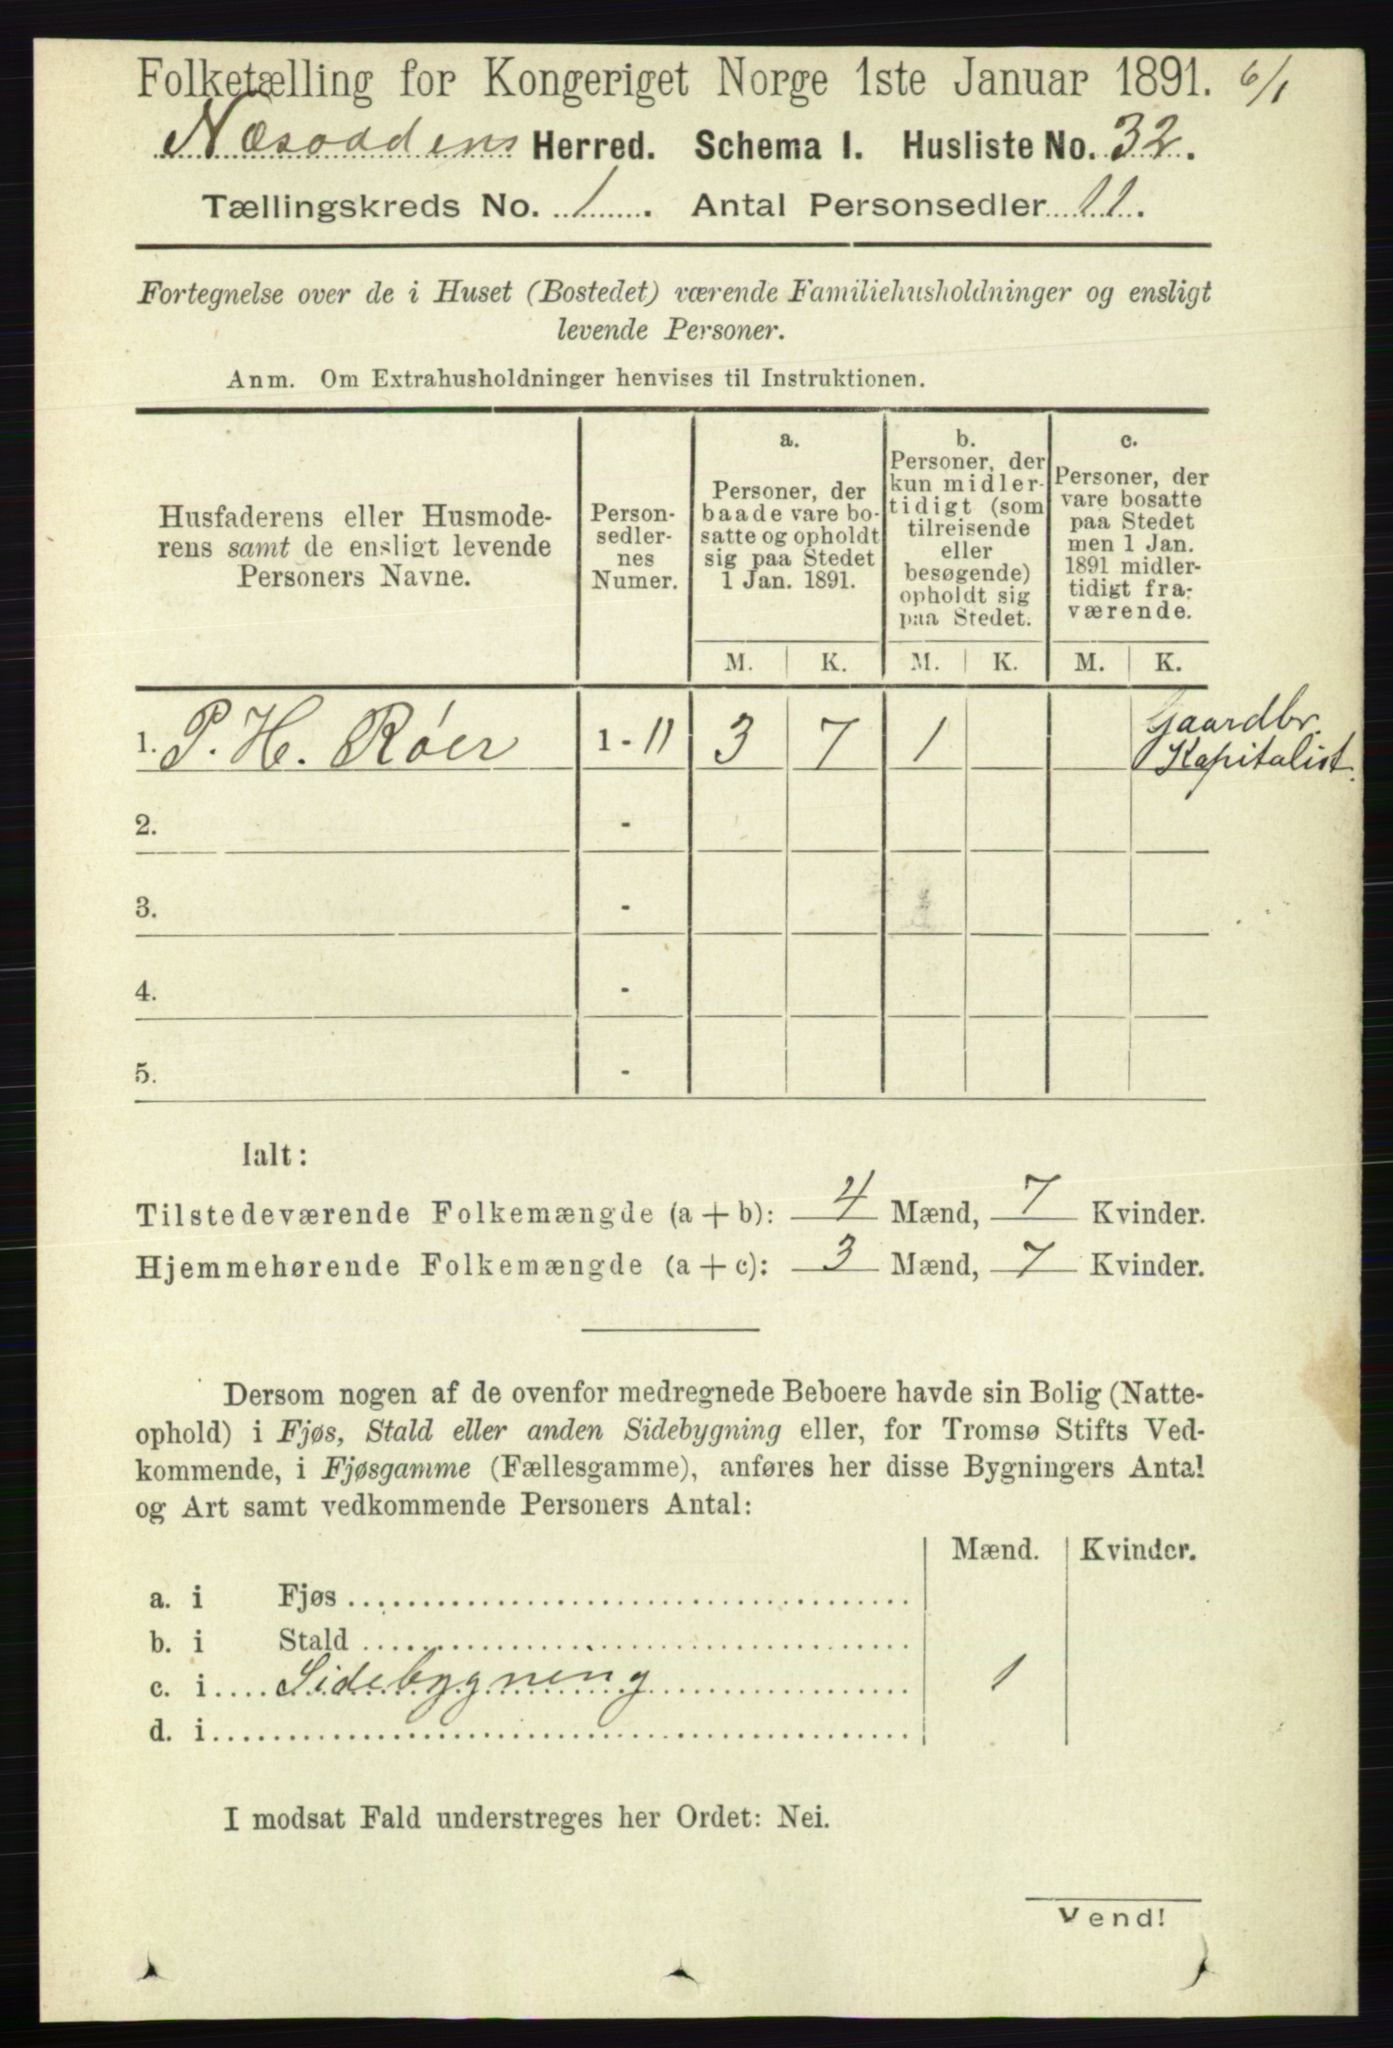 Folketælling for Kongeriget Norge 1ste Januar 1891. 6/1
Næsoddens Herred. Schema I. Husliste No. 32.
Tællingskreds No. 1. Antal Personsedler 11.
Fortegnelse over de i Huset (Bostedet) værende Familiehusholdninger og ensligt
levende Personer.
Anm. Om Extrahusholdninger henvises til Instruktionen.
Husfaderens eller Husmode-
rens samt de ensligt levende
Personers Navne.
Person-
sedler-
nes
Numer.
a.
Personer, der
baade vare bo-
satte og opholdt
sig paa Stedet
1 Jan. 1891.
b.
Personer, der
kun midler-
tidigt (som
tilreisende
eller
besøgende)
opholdt sig
paa Stedet.
c.
Personer, der
vare bosatte
paa Stedet
men 1 Jan.
1891 midler-
tidigt fra-
værende.
M. K. M. K. M. K.
1. P. H. Röer 1 - 11 3 7 1 Gaardbr.
Kapitalist.
2. -
3. -
4. -
5. -
Ialt:
Tilstedeværende Folkemængde (a + b): 4 Mænd, 7 Kvinder.
Hjemmehørende Folkemængde (a + c): 3 Mænd, 7 Kvinder.
Dersom nogen af de ovenfor medregnede Beboere havde sin Bolig (Natte-
ophold) i Fjøs, Stald eller anden Sidebygning eller, for Tromsø Stifts Ved-
kommende, i Fjøsgamme (Fællesgamme), anføres her disse Bygningers Antal
og Art samt vedkommende Personers Antal:
Mænd. Kvinder.
a. i Fjøs
b. i Stald
c. i Sidebygning 1
d. i
I modsat Fald understreges her Ordet: Nei.
Vend!